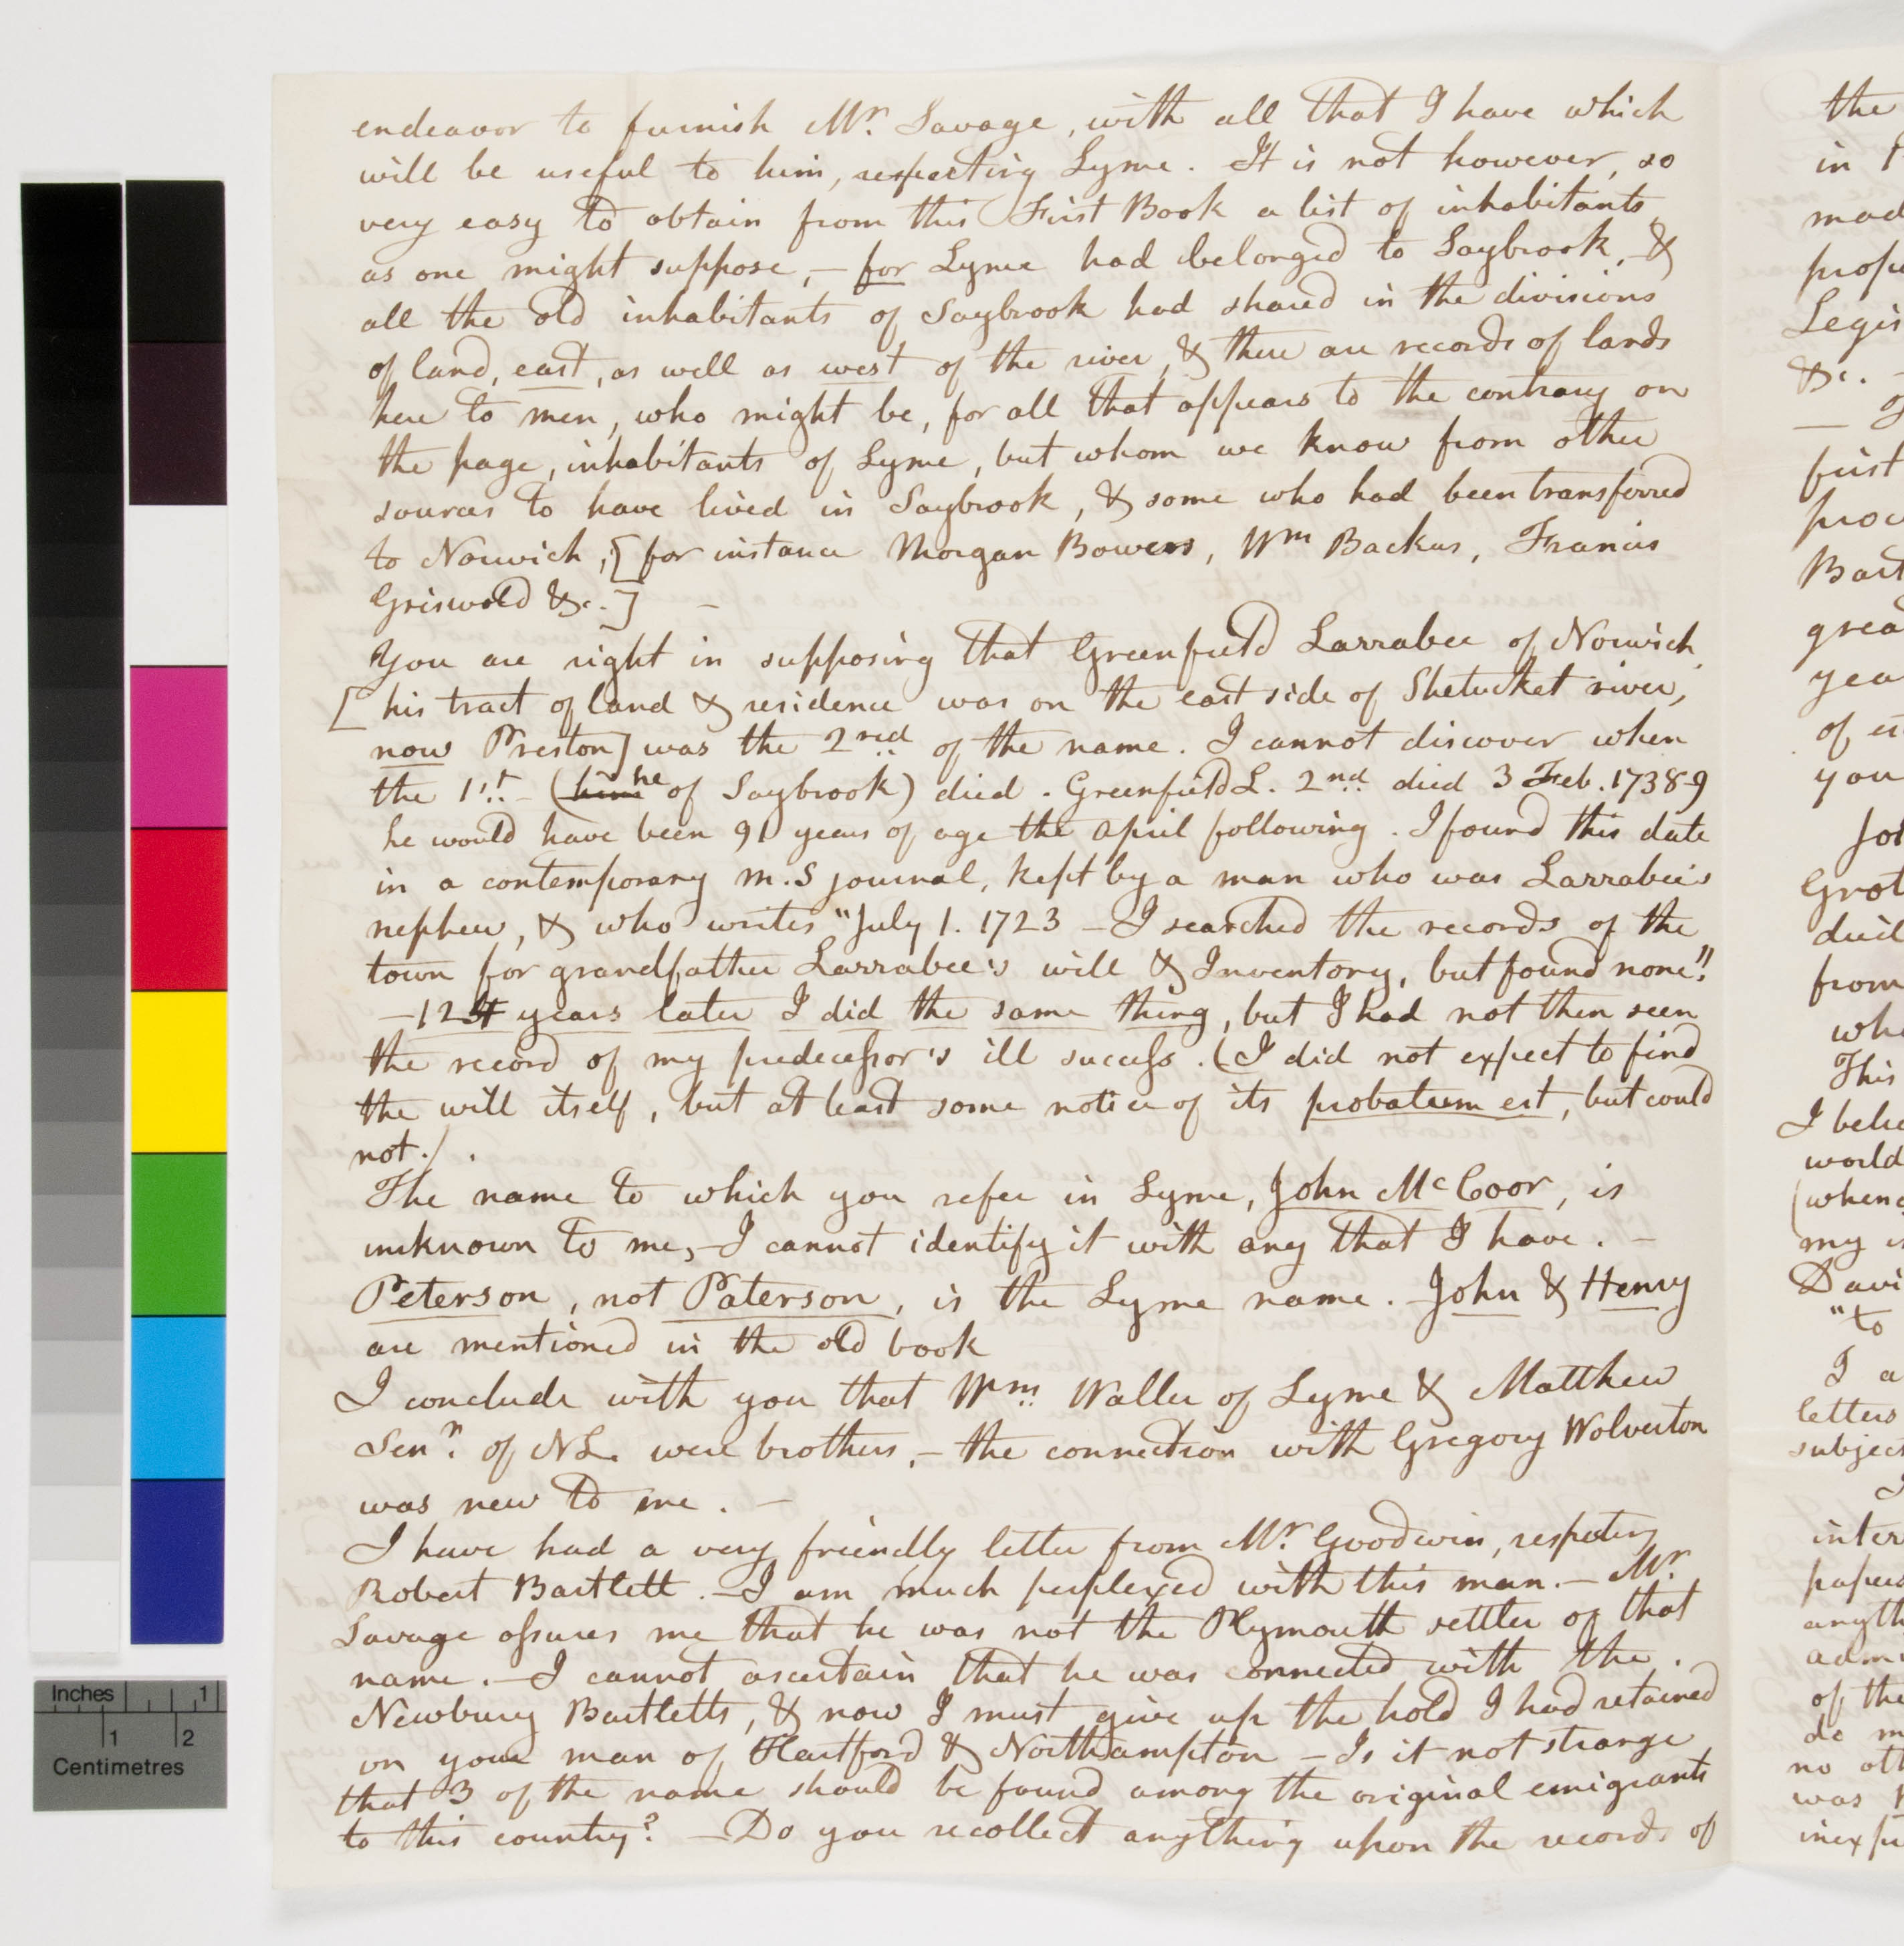 endeavor to furnish Mr. Savage, with all that I have which
will be useful to him, respecting Lyme. It is not however, so
very easy to obtain from this First Book a list of inhabitants
as one might suppose, – for Lyme had belonged to Saybrook, &
all the old inhabitants of Saybrook had shared in the divisions
of land, east, as well as west of the river, & there are records of lands
here to men, who might be, for all that appears to the contrary on
the page, inhabitants of Lyme, but whom we know from other
sources to have lived in Saybrook, & some who had been transferred
to Norwich, [for instance Morgan Bowers, Wm Backus, Francis
Griswold &c.] –
You are right in supposing that Greenfield Larrabee of Norwich,
[his tract of land & residence was on the east side of Shetucket river,
now Preston] was the 2nd of the name. I cannot discover when
the 1st – (him he of Saybrook) died. Greenfield L. 2nd died 3 Feb. 1738-9
he would have been 91 years of age the April following. I found this date
in a contemporary m.S journal, kept by a man who was Larrabee's
nephew, & who writes "July 1. 1723 – I searched the records of the
town for grandfather Larrabee's will & Inventory, but found none"!
– 124 years later I did the same thing, but I had not then seen
the record of my predecessor's ill success. (I did not expect to find
the will itself, but at least some notice of its probatum est, but could
not.) .
The name to which you refer in Lyme, John McCoor, is
unknown to me, – I cannot identify it with any that I have. –
Peterson, not Paterson, is the Lyme name. John & Henry
are mentioned in the old book
I conclude with you that Wm. Waller of Lyme & Matthew
Senr. of NL. were brothers, – the connection with Gregory Wolverton
was new to me. –
I have had a very friendly letter from Mr. Goodwin, respecting
Robert Bartlett. – I am much perplexed with this man. – Mr.
Savage assures me that he was not the Plymouth settler of that
name. – I cannot ascertain that he was connected with the
Newbury Bartletts, & now I must give up the hold I had retained
on your man of Hartford & Northampton – Is it not strange
that 3 of the name should be found among the original emigrants
to this country? – Do you recollect anything upon the records of
the
in
Legis
&c. –
first
of
you
Grot
from
This
world
my
Davi
"to
I a
letters
subject
of the
no oth
was
Inches 1
1 2
Centimetres